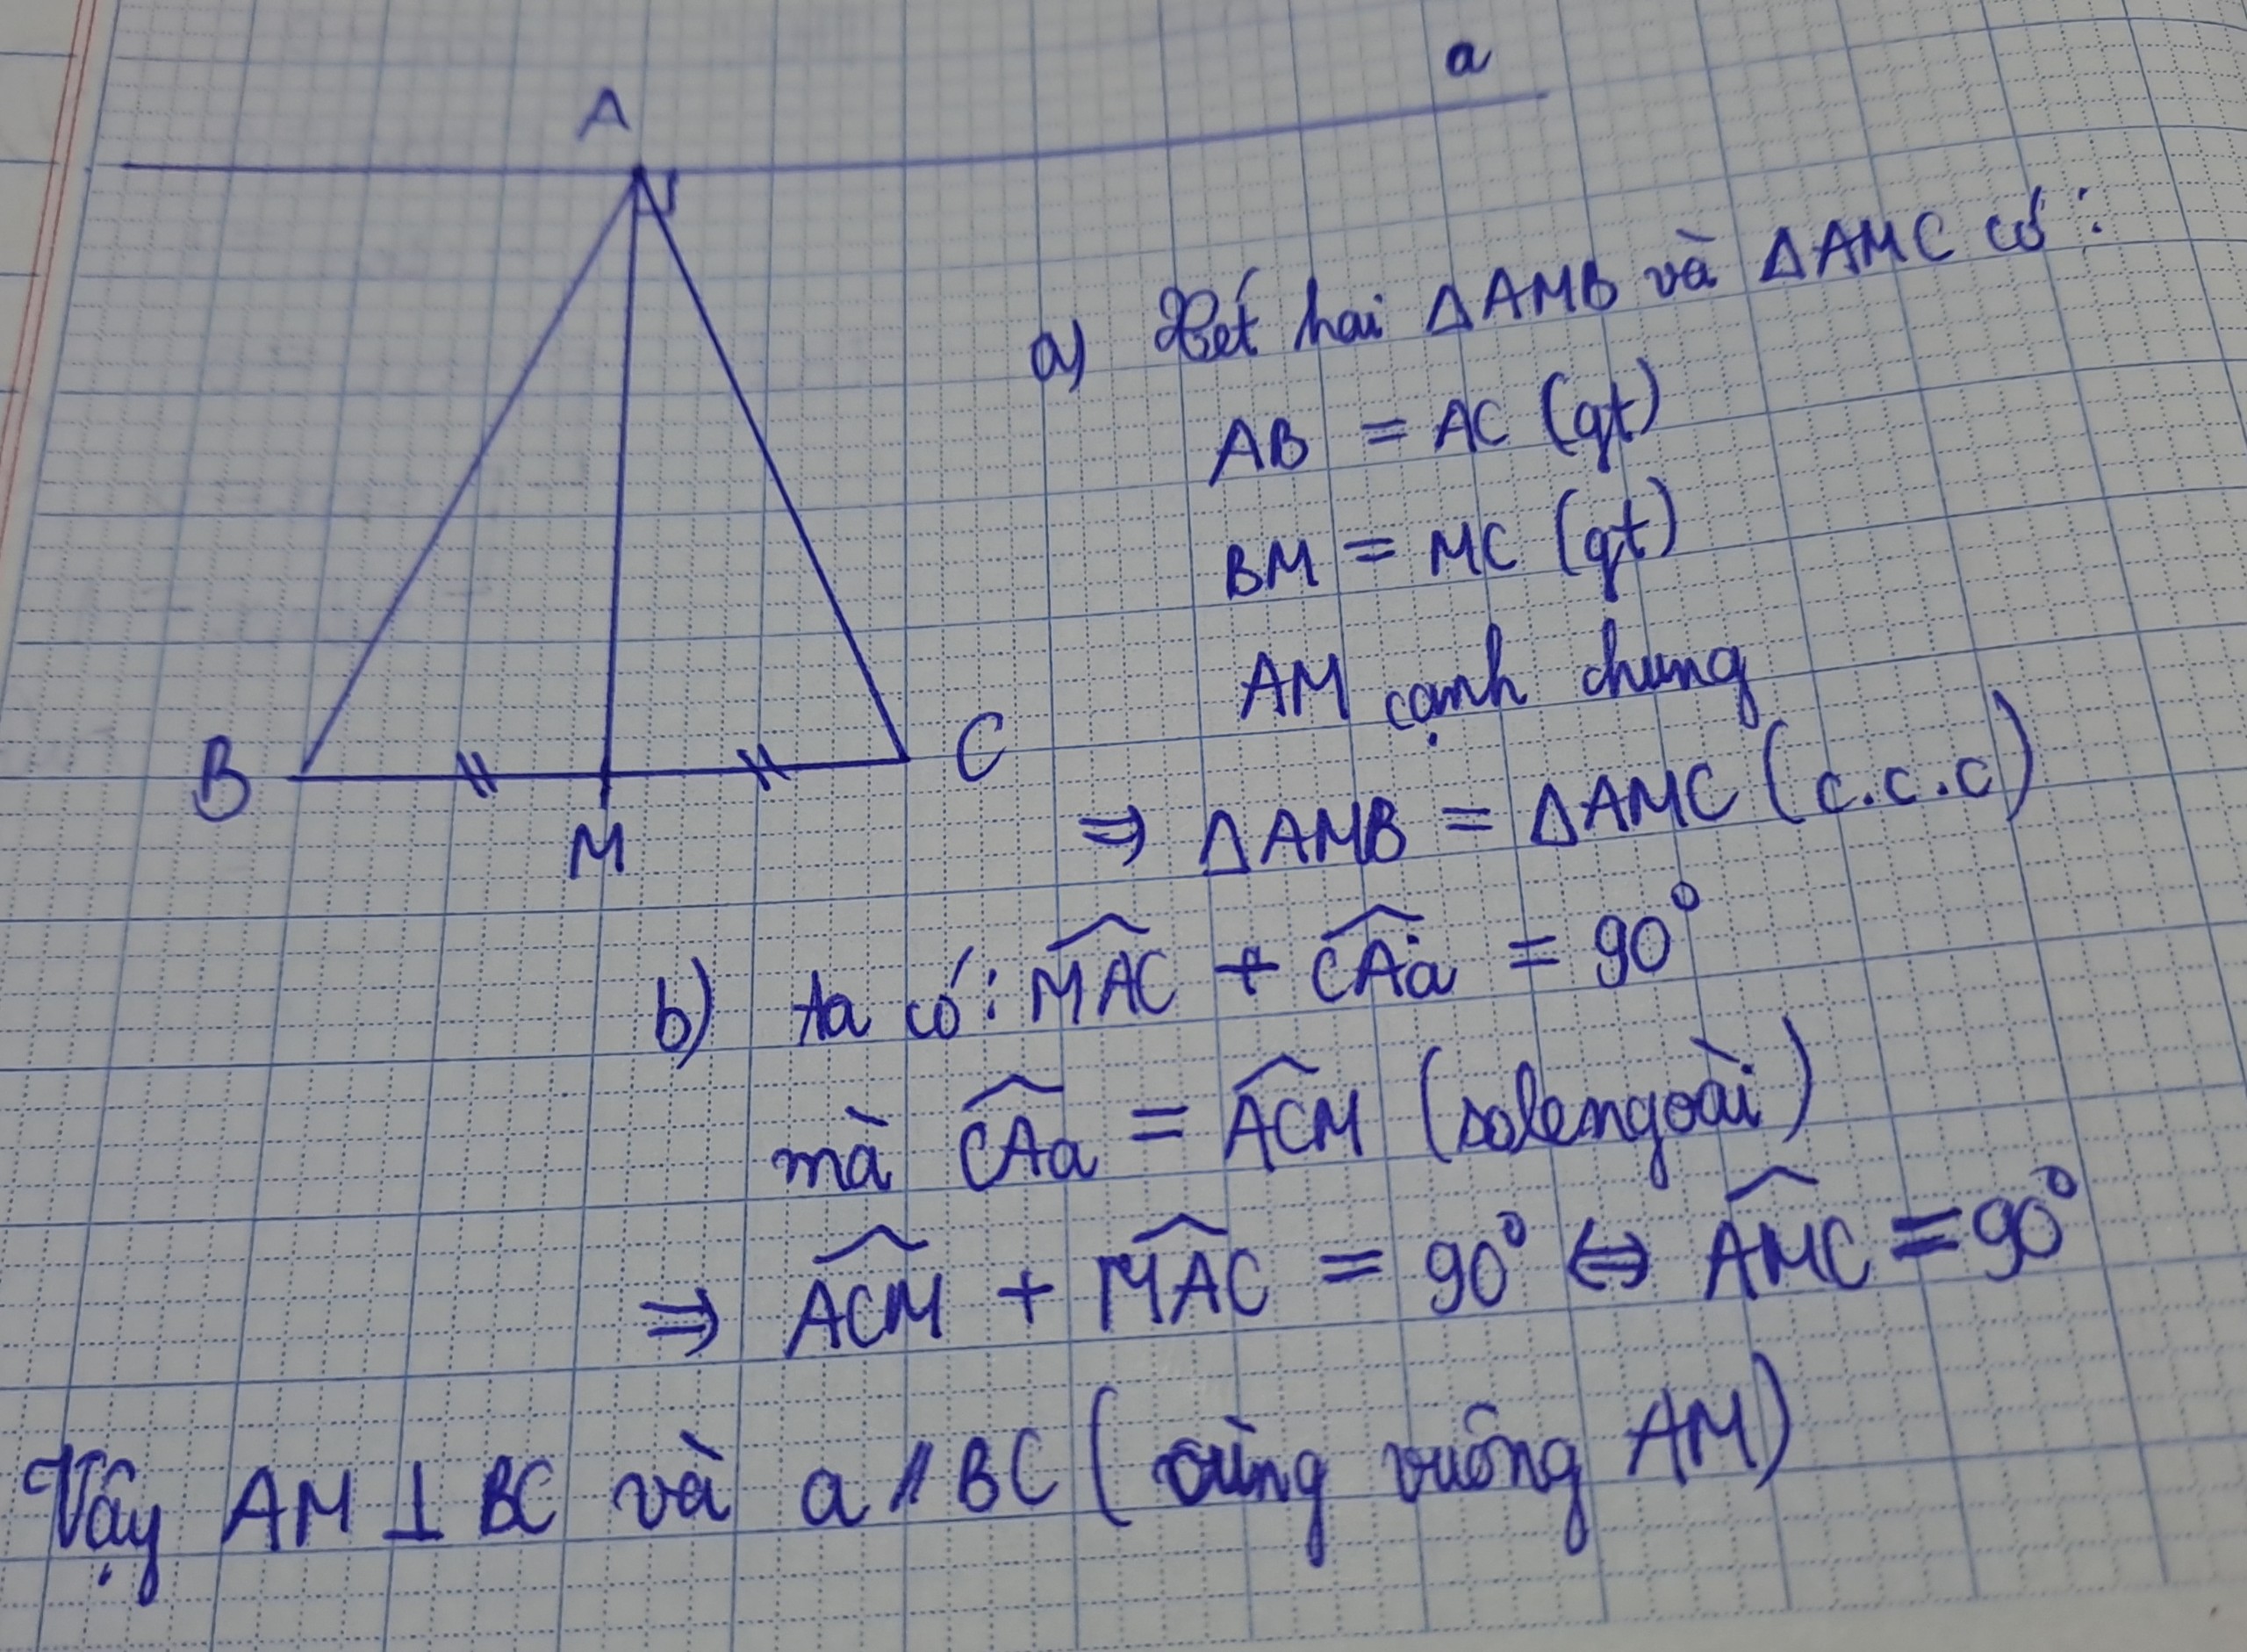 A
a
B
C
M
a) Xét hai ΔAMB và ΔAMC có:
AB = AC (gt)
BM = MC (gt)
AM cạnh chung
⇒ ΔAMB = ΔAMC (c.c.c)
b) ta có: \widehat{MAC} + \widehat{CAa} = 90°
mà \widehat{CAa} = \widehat{ACM} (solengoài)
⇒ \widehat{ACM} + \widehat{MAC} = 90° ⇔ \widehat{AMC} = 90°
Vậy AM ⊥ BC và a // BC (cùng vuông AM)